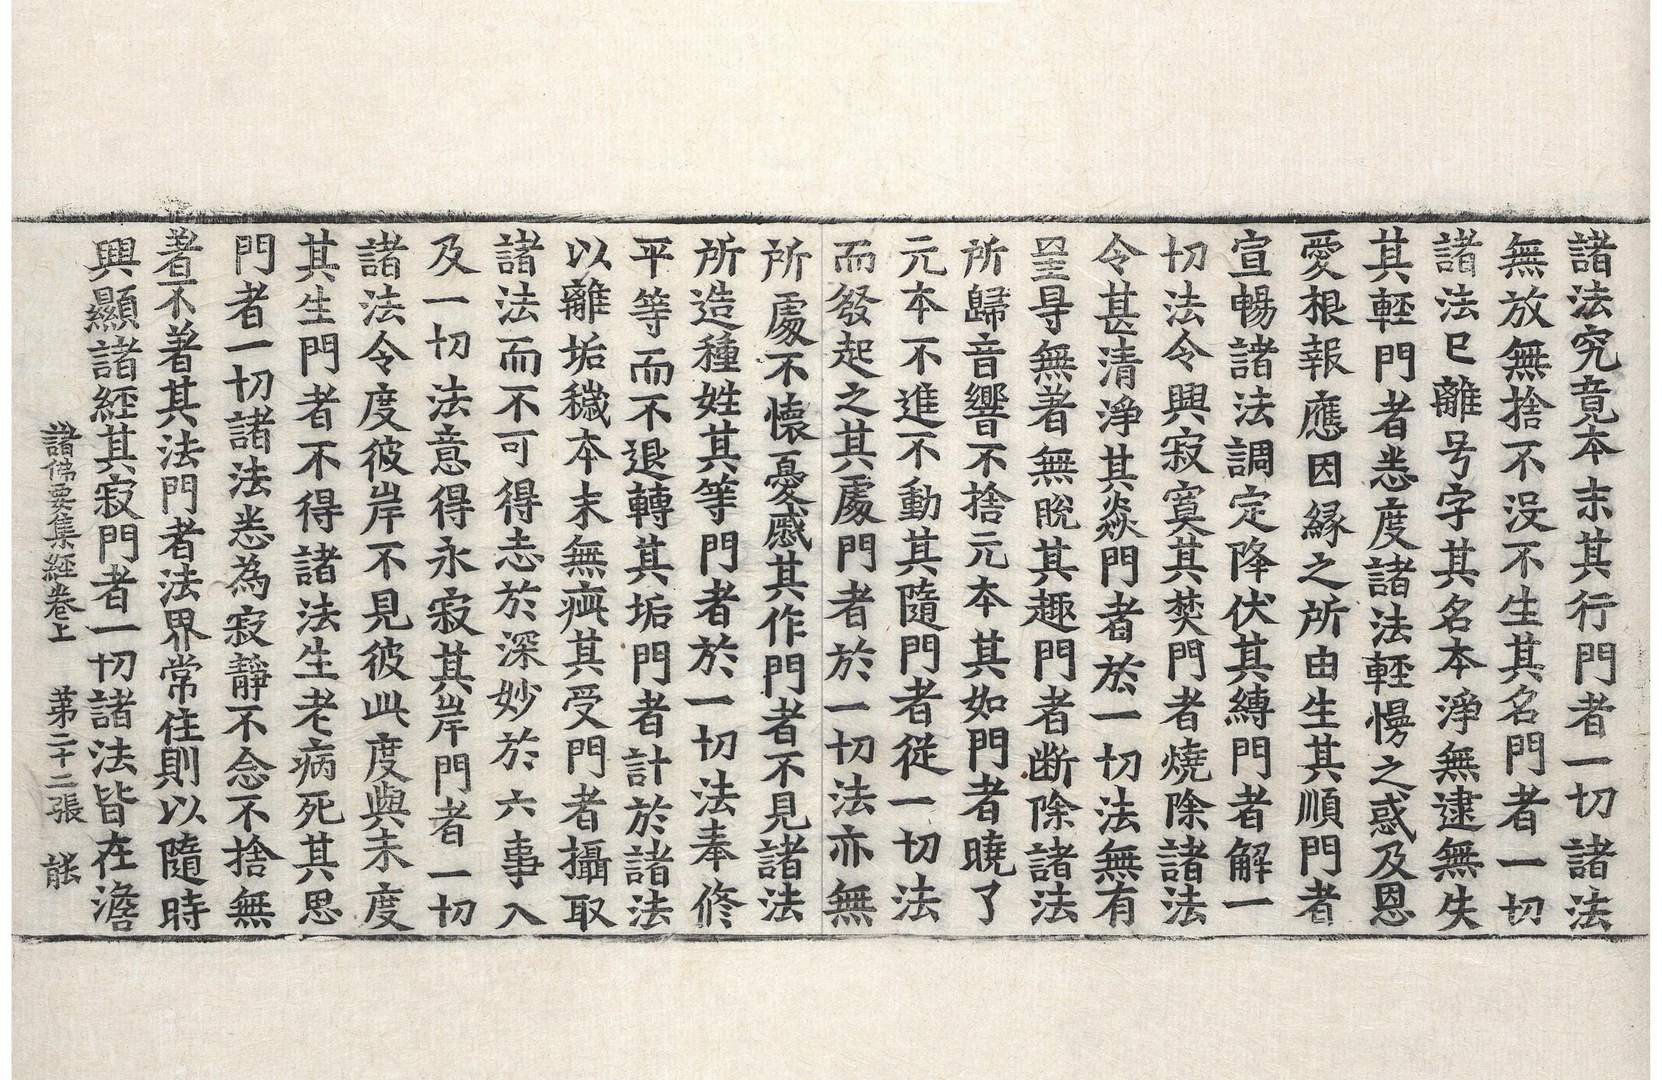 諸法究竟本末其行門者一切諸法
無放無捨不没不生其名門者一切
諸法已離号字其名本淨無逮無失
其輕門者悉度諸法輕慢之惑及恩
愛根報應因縁之所由生其順門者
宣暢諸法調定降伏其縛門者解一
切法令興寂寞其焚門者燒除諸法
令甚清淨其焱門者於一切法無有
罣㝵無著無脫其趣門者断除諸法
所歸音響不捨元本其如門者曉了
元本不進不動其隨門者從一切法
而發起之其處門者於一切法亦無
所處不懷憂慼其作門者不見諸法
所造種姓其等門者於一切法奉修
平等而不退轉其垢門者計於諸法
以離垢穢本末無瑱其受門者攝取
諸法而不可得志於深妙於六事入
及一切法意得永寂其岸門者一切
諸法令度彼岸不見彼此度與未度
其生門者不得諸法生老病死其思
門者一切諸法悉為寂靜不念不捨無
著不著其法門者法界常住則以隨時
興顯諸經其寂門者一切諸法皆在澹
諸佛要集經卷上 第二十二張